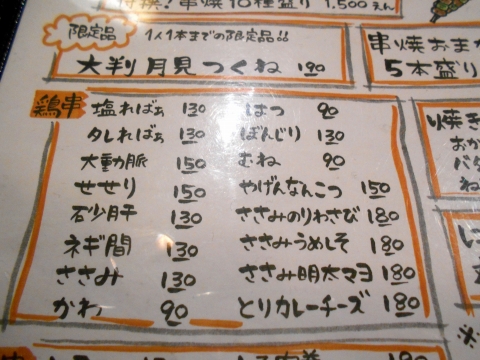 串焼10種盛り 1,500えん
限定品
1人1本までの限定品!!
大判月見つくね 190
串焼おまか
5本盛り
鶏串
塩ればぁ 130
タレればぁ 130
大動脈 150
せせり 150
砂肝 130
ネギ間 130
ささみ 130
かわ 90
はつ 90
ぼんじり 130
むね 90
やげんなんこつ 150
ささみのりわさび 180
ささみうめしそ 180
ささみ明太マヨ 180
とりカレーチーズ 180
焼き
おか
バタ